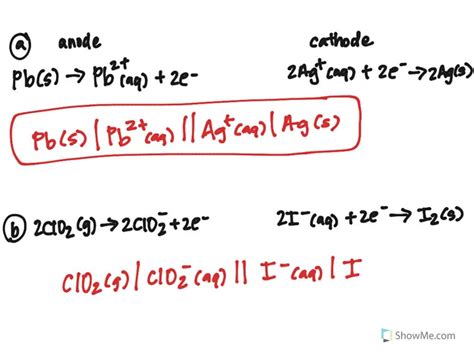 ⓐ anode cathode
Pb(s) → Pb²⁺(aq) + 2e- 2Ag⁺(aq) + 2e⁻→2Ag(s)
Pb(s) | Pb²⁺(aq) || Ag⁺(aq) | Ag(s)
ⓑ 2ClO₂(g)→2ClO₂⁻+2e- 2I⁻(aq) + 2e⁻→ I₂(s)
ClO₂(g) | ClO₂⁻(aq) || I⁻(aq) | I
ShowMe.com